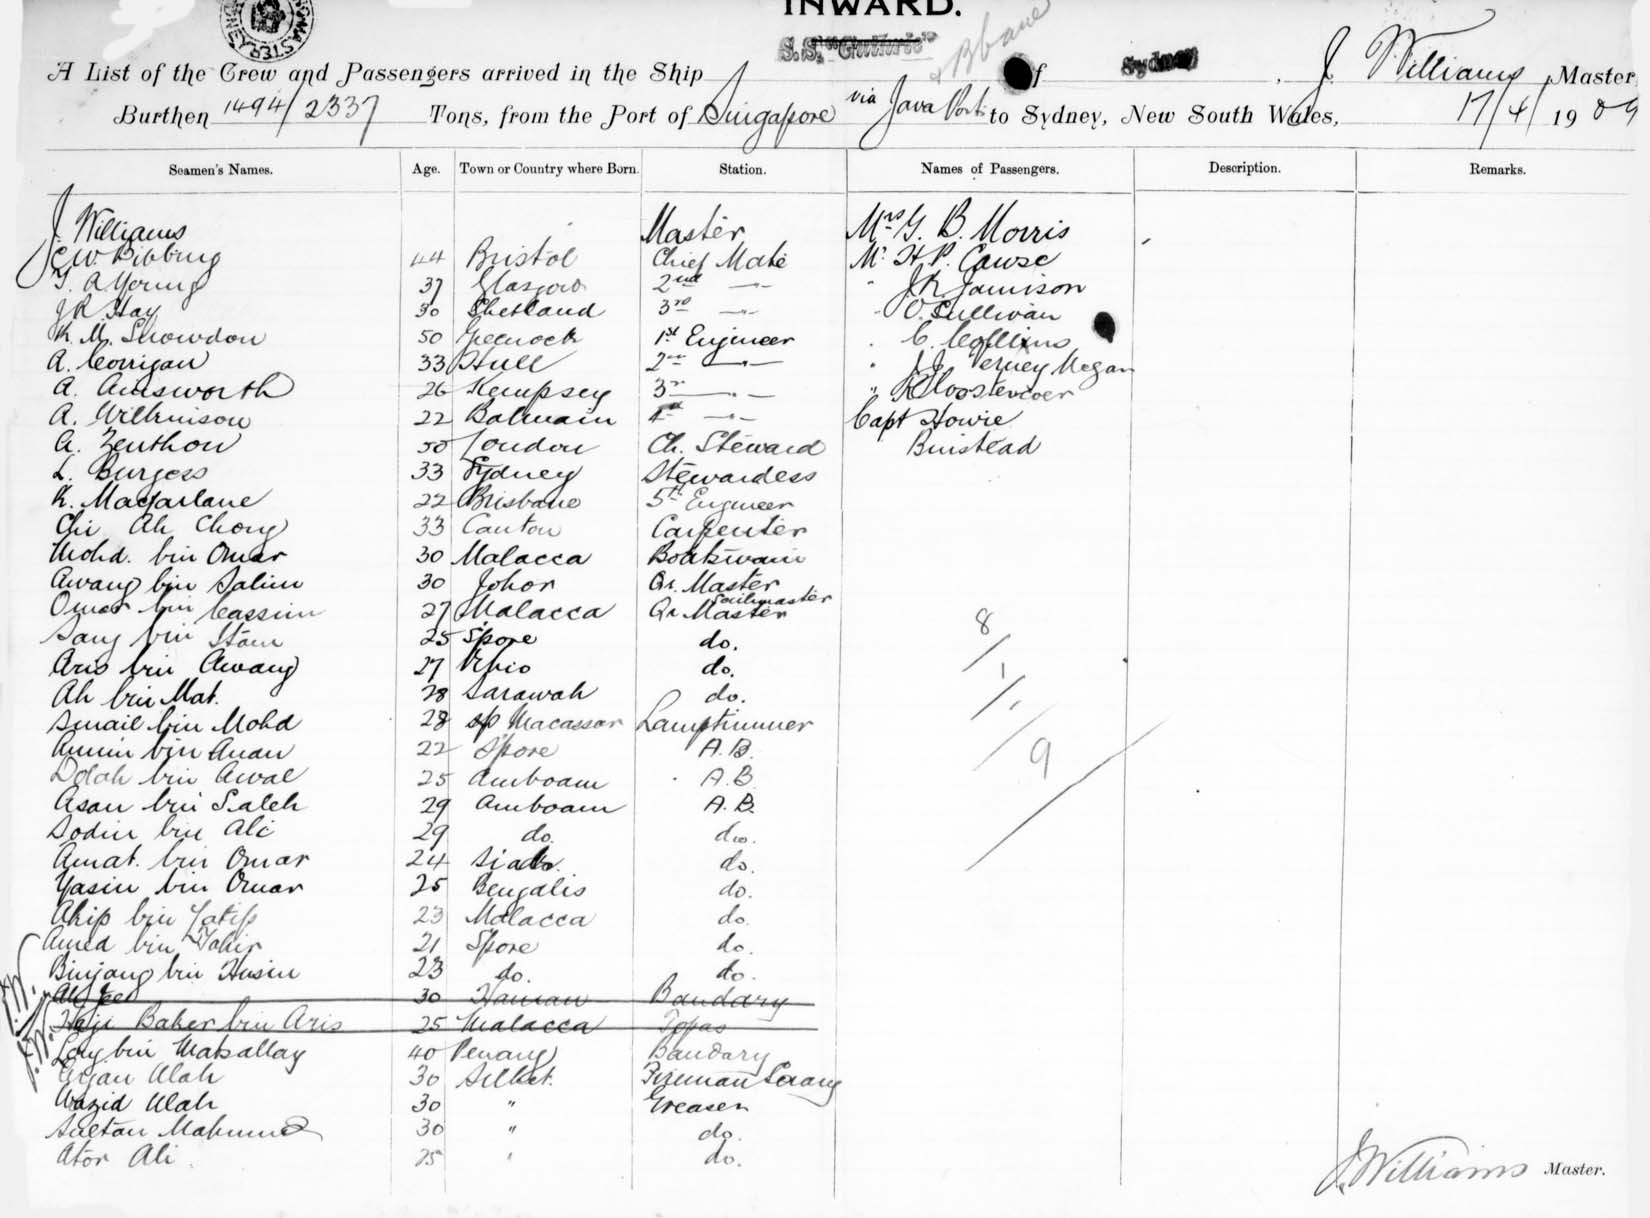 INWARD.
S.S. "Guthrie"
A List of the Crew and Passengers arrived in the Ship of Sydney, J. Williams, Master
Burthen 1494/2337 Tons, from the Port of Singapore via Java Ports to Sydney, New South Wales, 17/4/1909
Seamen's Names. Age. Town or Country where Born. Station. Names of Passengers. Description. Remarks.
J. Williams Master Mrs G. B. Morris
C.W. Bibbing 44 Bristol Chief Mate Mr H. P. Cowse
T. A Young 37 Glasgow 2nd —"— " J.R. Jamison
J.R. Hay 30 Shetland 3rd —"— " O. Sullivan
K. M. Snowdon 50 Greenock 1st Engineer " C. Collins
A. Corrigan 33 Hull 2nd —"— " J.J. Verney Megan
A. Ainsworth 26 Kempsey 3rd —"— "
A. Wilkinson 22 Balmain 4th —"— Capt Howie
A. Zenthon 50 London Ch. Steward Binstead
L. Burgess 33 Sydney Stewardess
K. Macfarlane 22 Brisbane 5th Engineer
Chi Ah Chong 33 Canton Carpenter
Mohd. bin Omar 30 Malacca Boatswain
Awang bin Salim 30 Johor Qr. Master
Omar bin Cassim 27 Malacca Qr Master Sailmaster
Sang bin Itam 25 Spore do.
Aris bin Awang 27 Rhio do.
Ah bin Mat. 28 Sarawak do.
Smail bin Mohd 28 Macassar Lamptrimmer
Amin bin Anan 22 Spore A.B.
Dolah bin Awal 25 Amboam A.B
Asan bin Saleh 29 Amboam A.B.
Sodin bin Ali 29 do. do.
Amat. bin Omar 24 Siak do.
Yasin bin Omar 25 Bengalis do.
Akip bin Latip 23 Malacca do.
Amed bin Tahir 21 Spore do.
Binjang bin Husin 23 do. do.
30 Hainan Bandary
Haji Baker bin Aris 25 Malacca Topas
Loy bin Matsallay 40 Penang Bandary
Arjan Ulah 30 Silhet. Fireman Serang
Wazid Ulah 30 " Greaser
Sultan Mahmud 30 " do.
Ator Ali 25 " do.
8/
1/1
/9
J. Williams Master.